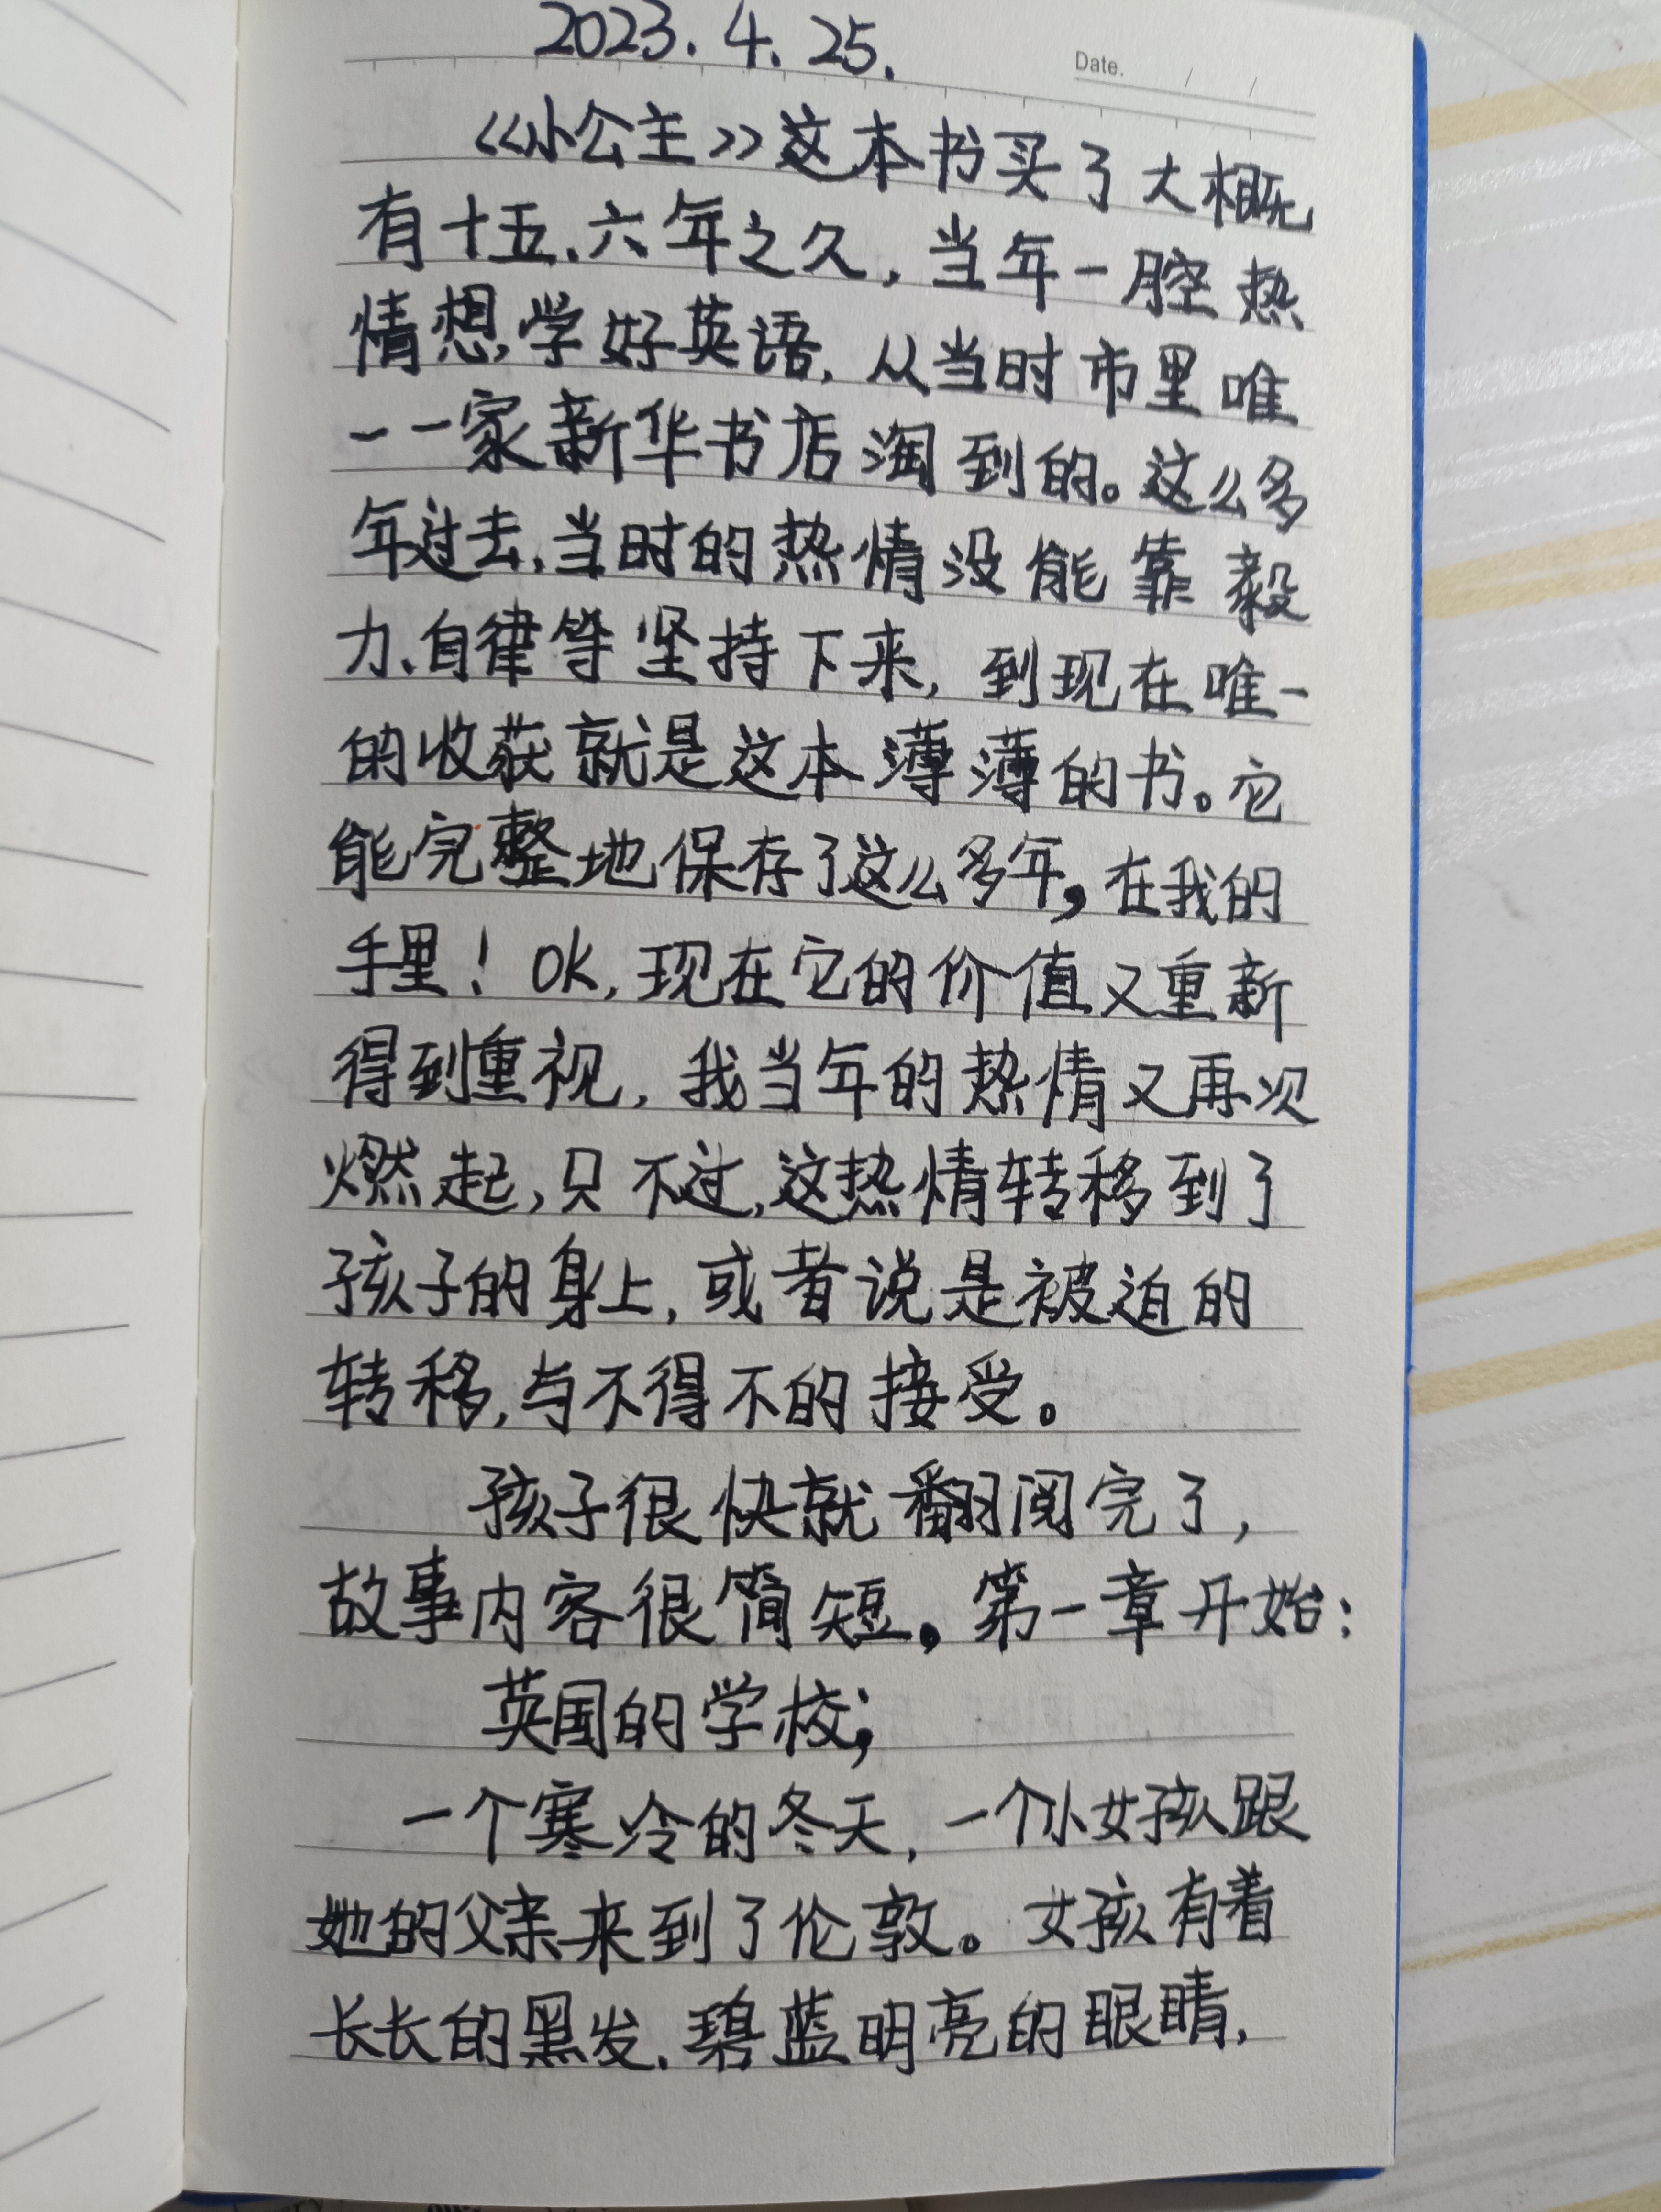 2023.4.25.
Date. / /
《小公主》这本书买了大概
有十五、六年之久，当年一腔热
情想学好英语，从当时市里唯
一一家新华书店淘到的。这么多
年过去，当时的热情没能靠毅
力、自律等坚持下来，到现在唯一
的收获就是这本薄薄的书。它
能完整地保存了这么多年，在我的
手里！OK，现在它的价值又重新
得到重视，我当年的热情又再次
燃起，只不过，这热情转移到了
孩子的身上，或者说是被迫的
转移，与不得不的接受。
孩子很快就翻阅完了，
故事内容很简短。第一章开始：
英国的学校；
一个寒冷的冬天，一个小女孩跟
她的父亲来到了伦敦。女孩有着
长长的黑发、碧蓝明亮的眼睛，